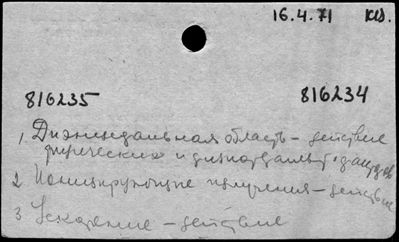 16.4.71 кш.
816235 816234
1, Диэнцефальная область – действие
физических и
2 Ионизирующие излучения – действие
3 Ускорение – действие